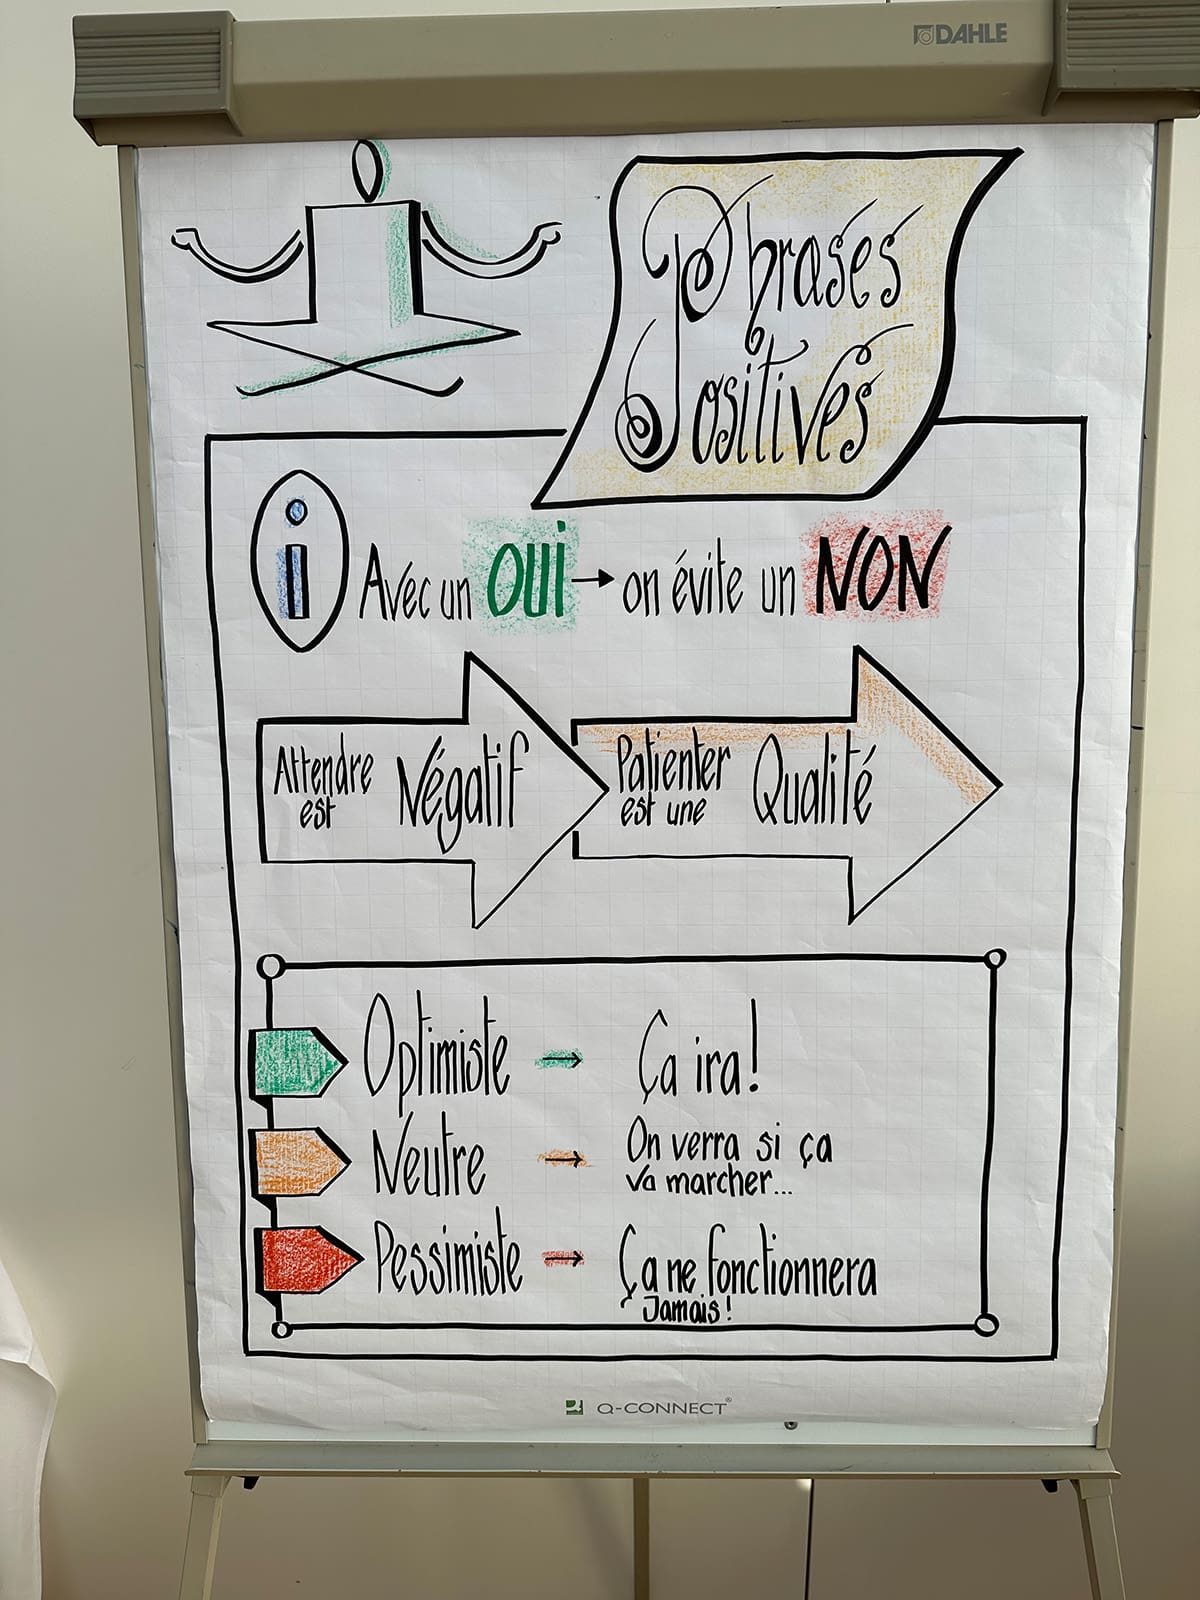 DAHLE
Phrases
Positives
i Avec un OUI → on évite un NON
Attendre
est
Négatif
Patienter
est une
Qualité
Optimiste → Ça ira!
Neutre → On verra si ça
va marcher...
Pessimiste → Ça ne fonctionnera
Jamais!
Q-CONNECT®